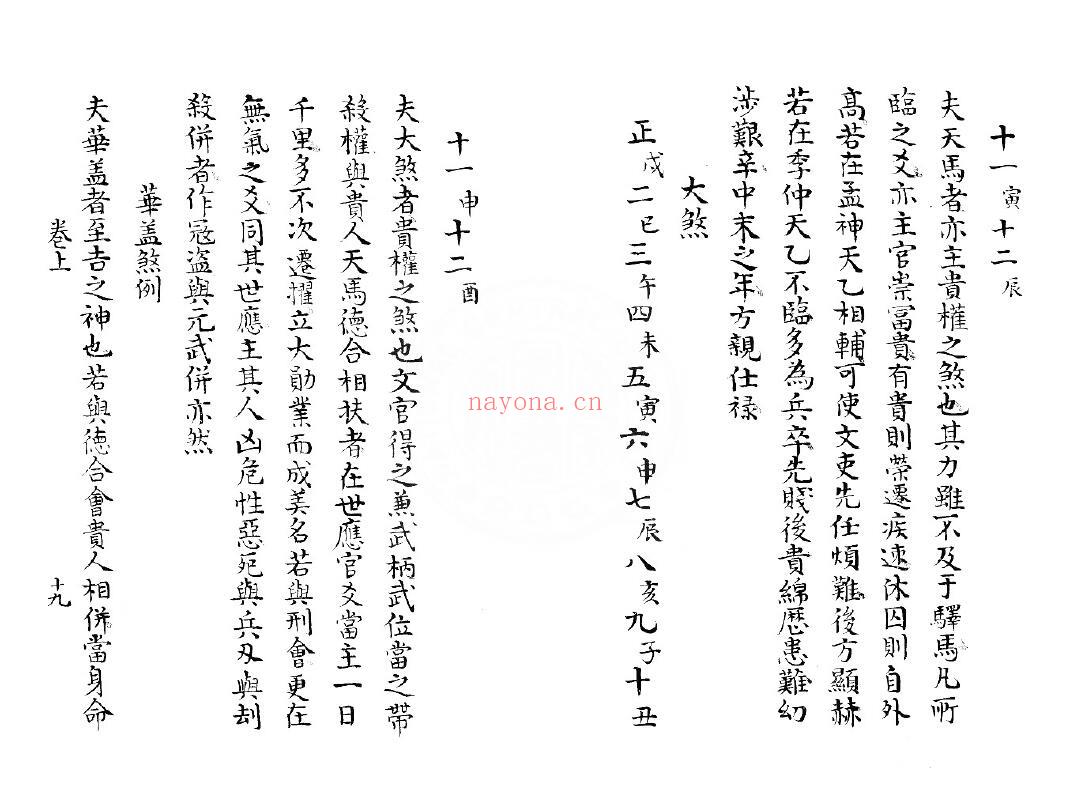 十一寅十二辰
夫天馬者亦主貴權之煞也其力雖不及于驛馬凡所
臨之爻亦主官崇富貴有貴則榮遷疾速休囚則自外
髙若在孟神天乙相輔可使文吏先任煩難後方顯赫
若在季仲天乙不臨多為兵卒先賤後貴綿歷患難幼
涉艱辛中末之年方親仕禄
大煞
正戌二巳三午四未五寅六申七辰八亥九子十丑
十一申十二酉
夫大煞者貴權之煞也文官得之兼武柄武位當之帶
殺權與貴人天馬德合相扶者在世應官爻當主一日
千里多不次遷擢立大勛業而成美名若與刑會更在
無氣之爻同其世應主其人凶危性惡死與兵刄與刦
殺併者作冦盗與元武併亦然
華盖煞例
夫華盖者至吉之神也若與德合會貴人相併當身命
卷上
十九
nayona.cn